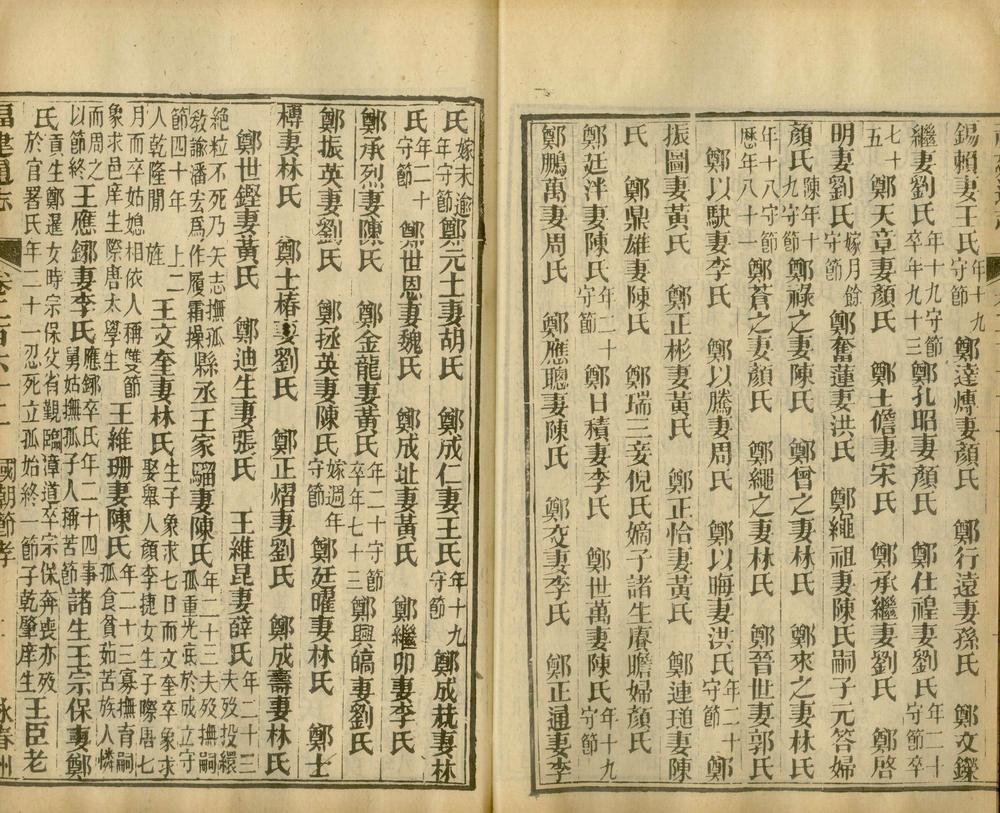 錫賴妻王氏年十九守節 鄭達煿妻顏氏 鄭行遠妻孫氏 鄭文鑠
繼妻劉氏年十九守節卒年九十三 鄭孔昭妻顏氏 鄭仕禋妻劉氏年二十守節卒
七十五 鄭天章妻顏氏 鄭士儋妻宋氏 鄭承繼妻劉氏 鄭啓
明妻劉氏嫁月餘守節 鄭奮蓮妻洪氏 鄭繩祖妻陳氏嗣子元答婦
顏氏陳年十九守節 鄭祿之妻陳氏 鄭曾之妻林氏 鄭來之妻林氏
年十八守節歷年八十一 鄭蒼之妻顏氏 鄭繩之妻林氏 鄭晉世妻郭氏
鄭以駃妻李氏 鄭以騰妻周氏 鄭以晦妻洪氏年二十守節 鄭
振圖妻黃氏 鄭正彬妻黃氏 鄭正恰妻黃氏 鄭連瑝妻陳
氏 鄭鼎雄妻陳氏 鄭瑞三妾倪氏嫡子諸生濬瞻婦顏氏
鄭廷泮妻陳氏年二十守節 鄭日積妻李氏 鄭世萬妻陳氏年十九守節
鄭鵬萬妻周氏 鄭應聰妻陳氏 鄭交妻李氏 鄭正通妻李
氏嫁未逾年守節 鄭元士妻胡氏 鄭成仁妻王氏年十九守節 鄭成栽妻林
氏年二十守節 鄭世恩妻魏氏 鄭成址妻黃氏 鄭繼卯妻李氏
鄭承烈妻陳氏 鄭金龍妻黃氏年二十守節卒年七十三 鄭興皜妻劉氏
鄭振英妻劉氏 鄭拯英妻陳氏嫁週年守節 鄭廷曜妻林氏 鄭士
樽妻林氏 鄭士椿妻劉氏 鄭正熠妻劉氏 鄭成壽妻林氏
鄭世鏗妻黃氏 鄭迪生妻張氏 王維昆妻薛氏年二十三夫歿投繯
絕粒不死乃矢志撫孤教諭潘宏為作履霜操 縣丞王家騮妻陳氏年二十三夫歿撫嗣孤重光底於成立守
節四十年 上二人乾隆間旌 王文奎妻林氏生子象求七日而文奎卒象求娶舉人顏李捷女生子際唐七
月而卒姑媳相依人稱雙節象求邑庠生際唐太學生 王維珊妻陳氏年二十三寡撫育嗣孤食貧茹苦族人憐
而周之以節終 王應鎯妻李氏應鎯卒氏年二十四事舅姑撫孤子人稱苦節 諸生王宗保妻鄭
氏貢生鄭暹女時宗保父省觀臨漳道卒宗保奔喪亦歿於官署氏年二十一忍死立孤始終一節子乾肇庠生 王臣老
福建通志 卷二百六十二 國朝節孝 永春州